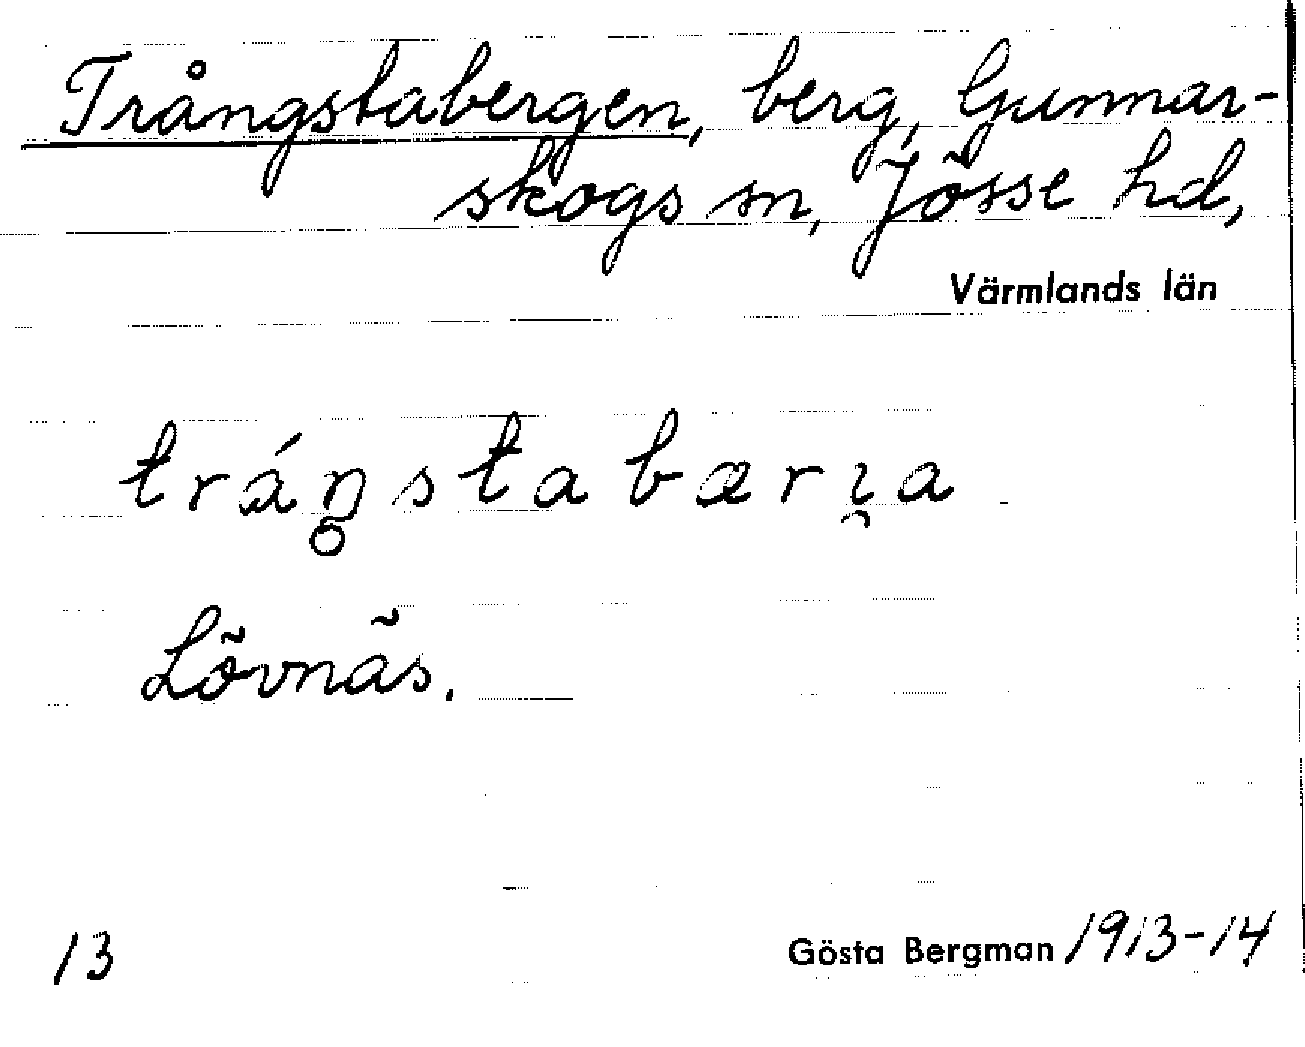 Trångstabergen, berg, Gunnar-
skogs sn, Jösse hd,
Värmlands län
tráŋ̥stabærı̯a
Lövnäs.
13
Gösta Bergman 1913-14